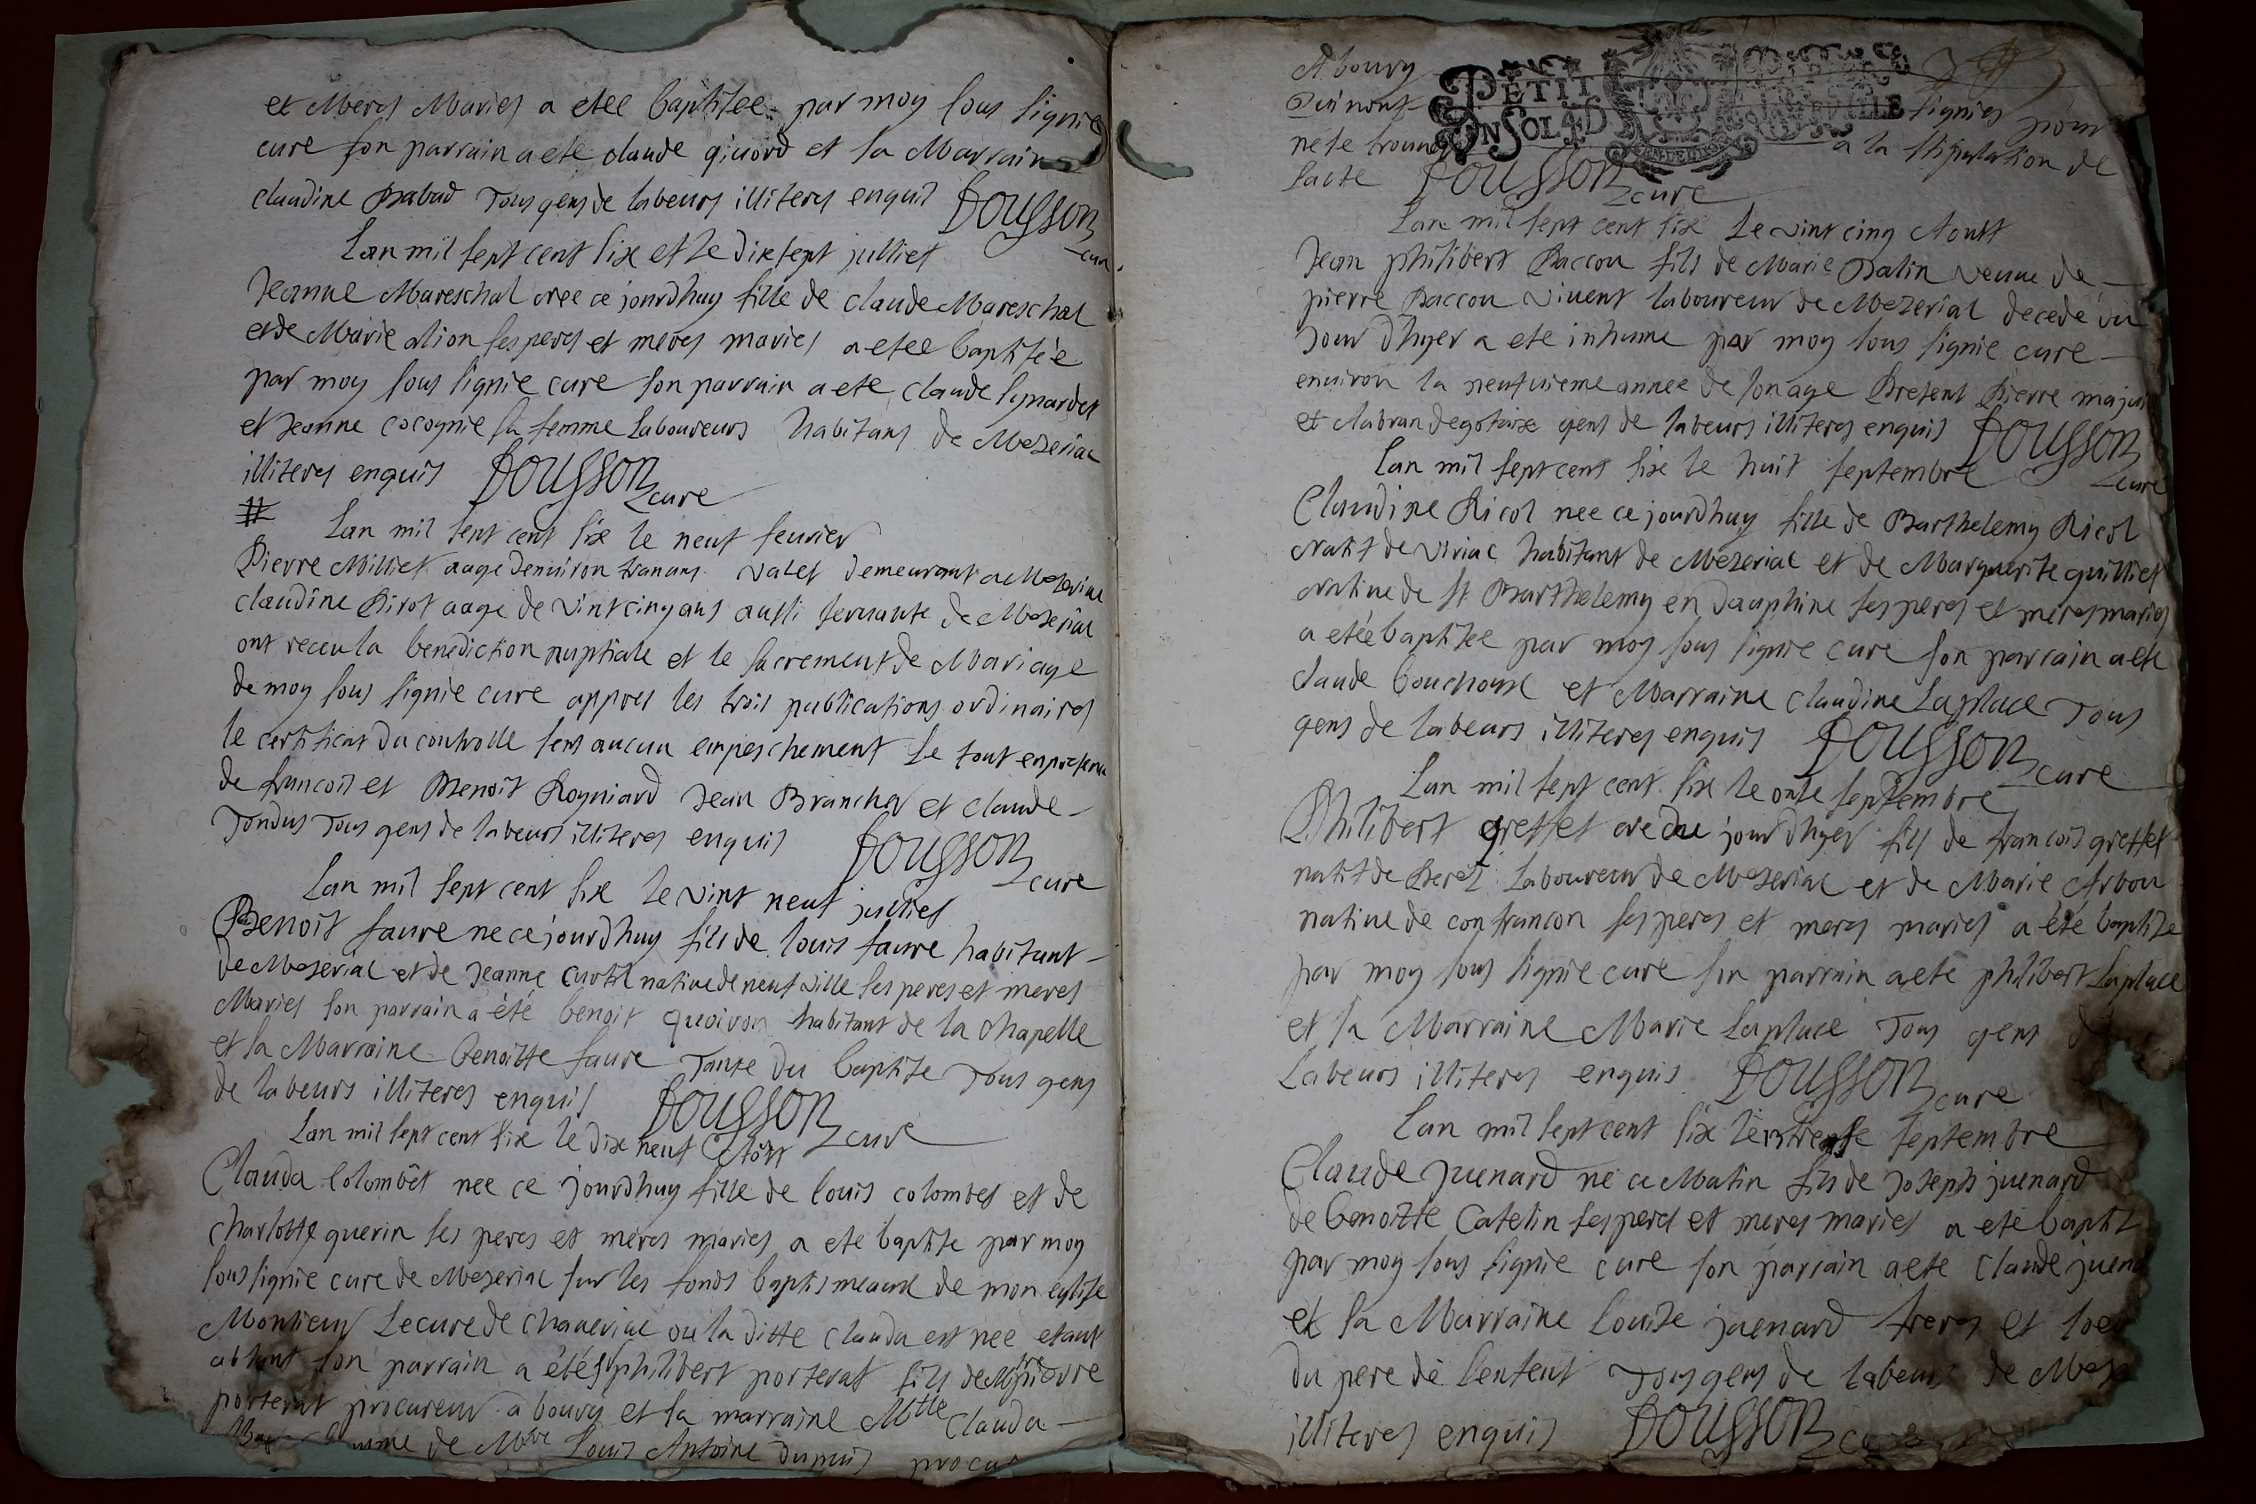 et Meres Maries a etee baptisee par moy sous signie
cure son parrain a ete claude giuord et la Marraine
claudine Rabud Tous gens de labeurs illiteres enquis Bousson
cure
Lan mil sept cent six et le dix sept julliet
Jeanne Mareschal nee ce jourdhuy fille de claude Mareschal
et de Marie alion ses peres et meres maries a etee baptisée
par moy sous signie cure son parrain a ete claude
et Jeanne cocognie sa femme Laboureurs habitans de Mezeriac
illiteres enquis Bousson cure
#
Lan mil sept cent six le neuf feurier
Pierre Milliet aage denuiron tranans valet demeurant a Mezeriac
claudine Pirot aage de vint cinq ans aussi seruante de Mezeriac
ont receu la benediction nuptiale et le sacrement de Mariage
de moy sous signie cure appres les trois publications ordinaires
le certificat du controlle sens aucun empeschement Le tout en presence
de francois et Benoit Rogniard Jean Brancha et claude
Tondus Tous gens de labeurs illiteres enquis Bousson
cure
Lan mil sept cent six le vint neuf julliet
Benoit faure ne ce jourdhuy fils de louis faure habitant
de Mezeriac et de Jeanne curtil natiue de neufuille ses peres et meres
Maries son parrain a été benoit quoiron habitant de la chapelle
et sa Marraine Benoitte faure Tante du baptise Tous gens
de labeurs illiteres enquis Bousson cure
Lan mil sept cent six le dix neuf Aoust
Clauda Colombét nee ce jourdhuy fille de louis colombet et de
charlotte guerin ses peres et méres maries a ete baptise par moy
sous signie cure de Mezeriac sur les fonds baptismeaux de mon eglise
Monsieur Le cure de chaueriac ou la ditte clauda est nee etant
absent son parrain a été philibert porterat fils de Mtre pierre
porterat procureur a bourg et sa marraine Mtte Clauda
femme de Mtre Louis Antoine dupuis
A bourg
Qui nont signies pour
ne se trouuer a la stipulation de
lacte Bousson cure
PETIT
Lan mil sept cent six Le vint cinq Aoust
Jean philibert Baccou fils de Marie Balin veuue de
pierre Baccou viuent laboureur de Mezeriac decede du
jour d'hyer a ete inhume par moy sous signie cure
enuiron la neufuieme annee de son age Present Pierre
et gens de labeurs illiteres enquis Bousson
cure
Lan mil sept cent six le huit septembre
Claudine Ricol nee ce jourdhuy fille de Barthelemy Ricol
Natif de viriac habitant de Mezeriac et de Marguerite quilliet
Natiue de st Barthelemy en dauphine ses peres et meres maries
a etée baptisee par moy sous signie cure son parrain a ete
claude bouchoux et Marraine claudine Laplace Tous
gens de labeurs illiteres enquis Bousson
cure
Lan mil sept cent six le onse septembre
Philibert greffet ne du jour dhyer fils de francois greffet
natif de Laboureur de Mezeriac et de Marie Arbon
natiue de confrancon ses peres et meres maries a été baptise
par moy sous signie cure son parrain a ete philibert Laplace
et sa Marraine Marie Laplace Tous gens de
Labeurs illiteres enquis Bousson cure
Lan mil sept cent six le trense septembre
Claude juenard ne ce Matin fils de joseph juenard
de benoitte Catelin ses peres et meres maries a eté
par moy sous signie cure son parrain a ete Claude
et sa Marraine Louise juenard freres et
du pere de Lenfent Tous gens de labeurs de
illiteres enquis Bousson